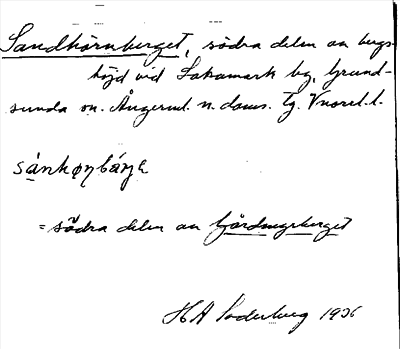 Sandhörnberget, södra delen av bergs-
höjd vid Sakamark by, Grund-
sunda sn. Ångerml. n. doms. Tg. Vnorrl. l.
sánkǫn̥bárjɛ
= södra delen av Fjärdingsberget
HA Söderberg 1936